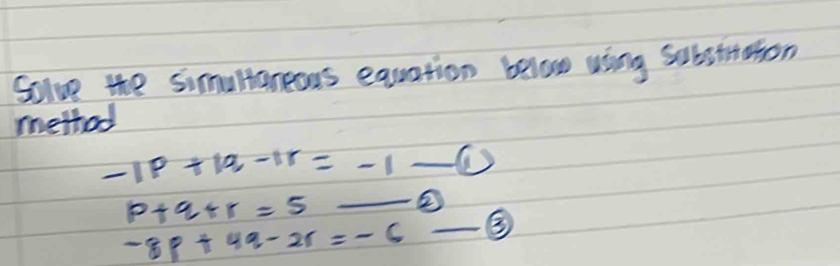 Solve the simultaneous equation below using substitution
method
-1p + 1q - 1r = -1 — ①
p + q + r = 5 — ②
-8p + 4q - 2r = -6 — ③